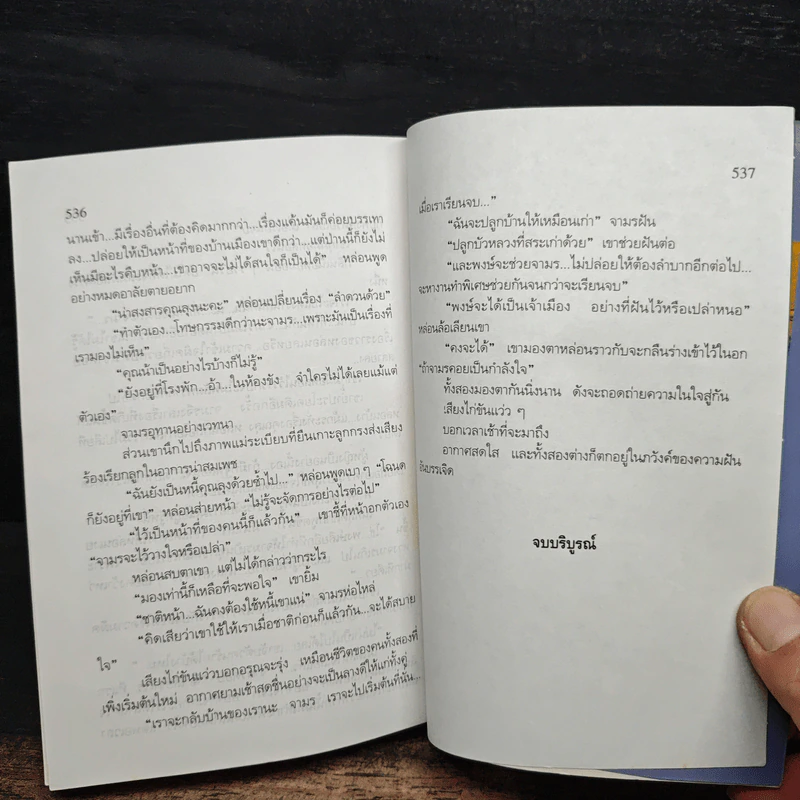 536
นานเข้า...มีเรื่องอื่นที่ต้องคิดมากกว่า...เรื่องแค้นมันก็ค่อยบรรเทา
ลง...ปล่อยให้เป็นหน้าที่ของบ้านเมืองเขาดีกว่า...แต่ป่านนี้ก็ยังไม่
เห็นมีอะไรคืบหน้า...เขาอาจจะไม่ได้สนใจก็เป็นได้” หล่อนพูด
อย่างหมดอาลัยตายอยาก
“น่าสงสารคุณลุงนะคะ” หล่อนเปลี่ยนเรื่อง “ลำดวนด้วย”
“ทำตัวเอง...โทษกรรมดีกว่านะจามร...เพราะมันเป็นเรื่องที่
เรามองไม่เห็น”
“คุณน้าเป็นอย่างไรบ้างก็ไม่รู้”
“ยังอยู่ที่โรงพัก...อ้า...ในห้องขัง จำใครไม่ได้เลยแม้แต่
ตัวเอง”
จามรอุทานอย่างเวทนา
ส่วนเขานึกไปถึงภาพแม่ระเบียบที่ยืนเกาะลูกกรงส่งเสียง
ร้องเรียกลูกในอาการน่าสมเพช
“ฉันยังเป็นหนี้คุณลุงด้วยซ้ำไป...” หล่อนพูดเบา ๆ “โฉนด
ก็ยังอยู่ที่เขา” หล่อนส่ายหน้า “ไม่รู้จะจัดการอย่างไรต่อไป”
“ไว้เป็นหน้าที่ของคนนี้ก็แล้วกัน” เขาชี้ที่หน้าอกตัวเอง
“จามรจะไว้วางใจหรือเปล่า”
หล่อนสบตาเขา แต่ไม่ได้กล่าวว่ากระไร
“มองเท่านี้ก็เหลือที่จะพอใจ” เขายิ้ม
“ชาติหน้า...ฉันคงต้องใช้หนี้เขาแน่” จามรห่อไหล่
“คิดเสียว่าเขาใช้ให้เราเมื่อชาติก่อนก็แล้วกัน...จะได้สบาย
ใจ”
เสียงไก่ขันแว่วบอกอรุณจะรุ่ง เหมือนชีวิตของคนทั้งสองที่
เพิ่งเริ่มต้นใหม่ อากาศยามเช้าสดชื่นอย่างจะเป็นลางดีให้แก่ทั้งคู่
“เราจะกลับบ้านของเรานะ จามร เราจะไปเริ่มต้นที่นั่น...
537
เมื่อเราเรียนจบ...”
“ฉันจะปลูกบ้านให้เหมือนเก่า” จามรฝัน
“ปลูกบัวหลวงที่สระเก่าด้วย” เขาช่วยฝันต่อ
“และพงษ์จะช่วยจามร...ไม่ปล่อยให้ต้องลำบากอีกต่อไป...
จะหางานทำพิเศษช่วยกันจนกว่าจะเรียนจบ”
“พงษ์จะได้เป็นเจ้าเมือง อย่างที่ฝันไว้หรือเปล่าหนอ”
หล่อนล้อเลียนเขา
“คงจะได้” เขามองตาหล่อนราวกับจะกลืนร่างเข้าไว้ในอก
“ถ้าจามรคอยเป็นกำลังใจ”
ทั้งสองมองตากันนิ่งนาน ดังจะถอดถ่ายความในใจสู่กัน
เสียงไก่ขันแว่ว ๆ
บอกเวลาเช้าที่จะมาถึง
อากาศสดใส และทั้งสองต่างก็ตกอยู่ในภวังค์ของความฝัน
อันบรรเจิด
จบบริบูรณ์